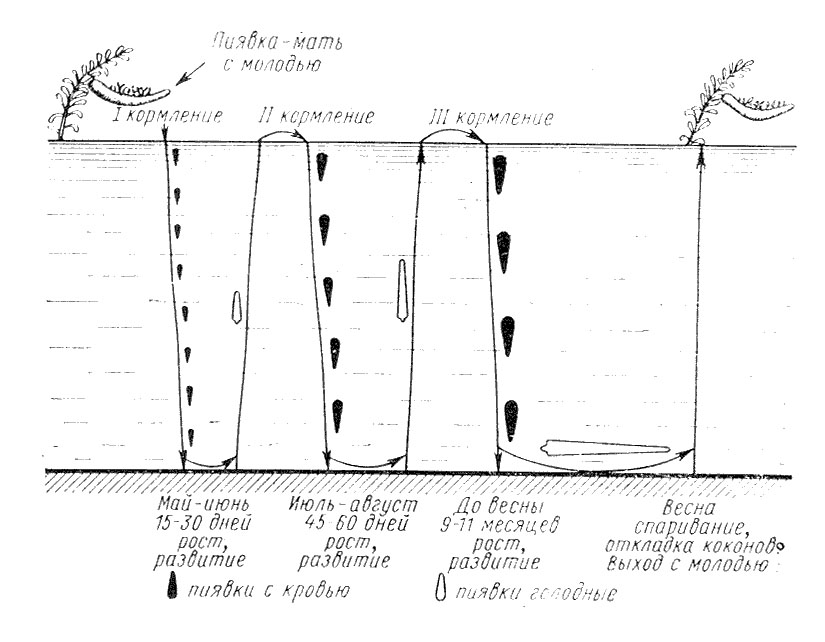 Пиявка-мать
с молодью
I кормление
II кормление
III кормление
Май-июнь
15-30 дней
рост,
развитие
Июль-август
45-60 дней
рост,
развитие
До весны
9-11 месяцев
рост,
развитие
Весна
спаривание,
откладка коконов,
выход с молодью
пиявки с кровью
пиявки голодные